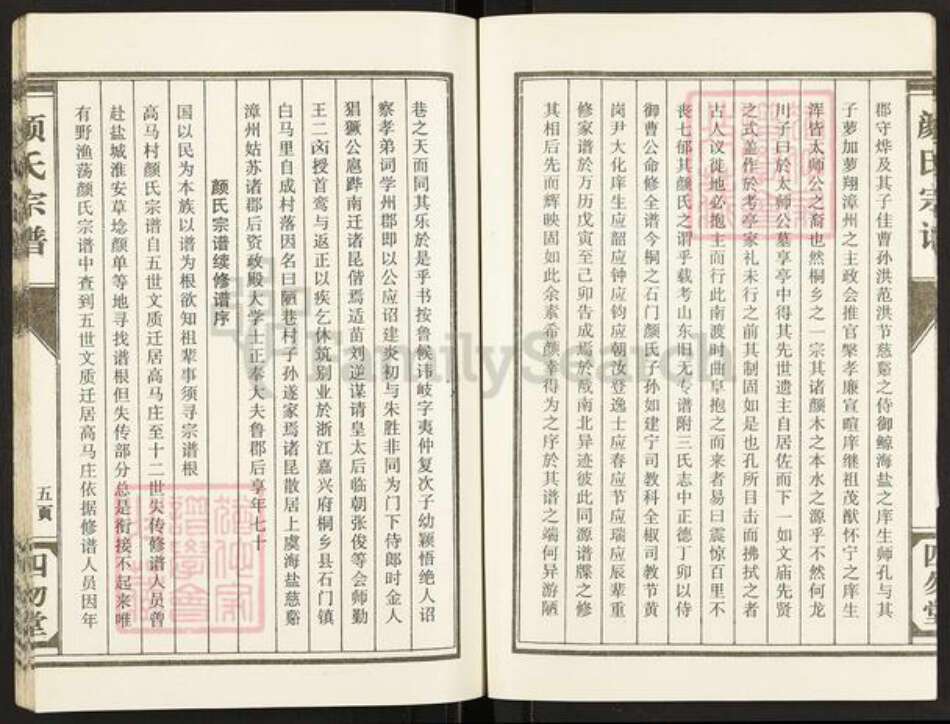 颜氏宗谱
四勿堂
郡守烨及其子佳曹孙洪范洪节慈谿之侍御鲸海盐之庠生师孔与其
子萝加萝翔漳州之主政会推官檠孝廉宣暄庠继祖茂猷怀宁之庠生
浑皆太师公之裔也然桐乡之一宗其诸颜木之本水之源乎不然何龙
川子曰於太师公墓享亭中得其先世遗主自居佐而下一如文庙先贤
之式盖作於考亭家礼未行之前其制固如是也孔所目击而拂拭之者
古人议徙地必抱主而行此南渡时曲阜抱之而来者易曰震惊百里不
丧七郁其颜氏之谓乎载考山东旧无专谱附三氏志中正德丁卯以侍
御曹公命修全谱今桐之石门颜氏子孙如建宁司教科全椒司教节黄
岗尹大化庠生应韶应钟应钧应朝汝登逸士应春应节应瑞应辰辈重
修家谱於万历戊寅至己卯告成焉於戏南北异迹彼此同源谱牒之修
其相后先而辉映固如此余素希颜幸得为之序於其谱之端何异游陋
巷之天而同其乐於是乎书按鲁候讳岐字夷仲复次子幼颖悟绝人诏
察孝弟词学州郡即以公应诏建炎初与朱胜非同为门下待郎时金人
猖獗公扈跸南迁诸昆偕焉适苗刘逆谋请皇太后临朝张俊等会师勤
王二凶授首鸾与返正以疾乞休筑别业於浙江嘉兴府桐乡县石门镇
白马里自成村落因名曰陋巷村子孙遂家焉诸昆散居上虞海盐慈谿
漳州姑苏诸郡后资政殿大学士正奉大夫鲁郡后享年七十
颜氏宗谱续修谱序
国以民为本族以谱为根欲知祖辈事须寻宗谱根
高马村颜氏宗谱自五世文质迁居高马庄至十二世失传修谱人员曾
赴盐城淮安草埝颜单等地寻找谱根但失传部分总是衔接不起来唯
有野渔荡颜氏宗谱中查到五世文质迁居高马庄依据修谱人员因年
颜氏宗谱
五页
四勿堂
FamilySearch